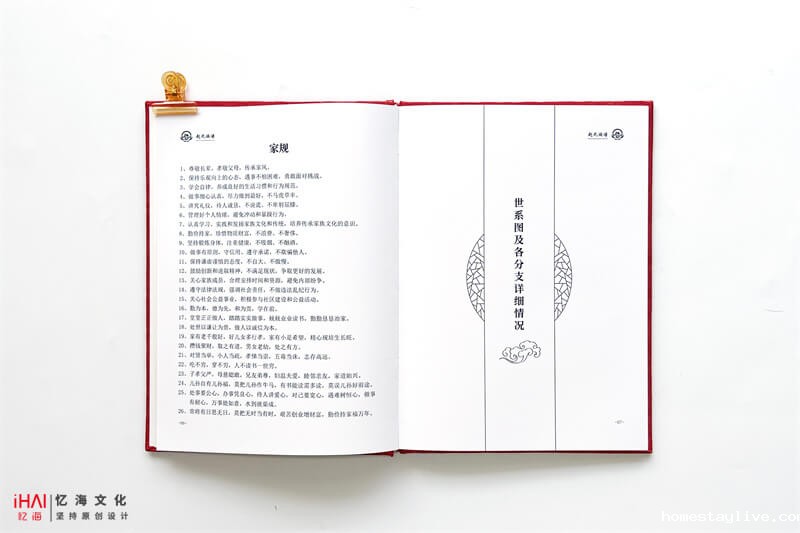 赵氏族谱
家规
1、尊敬长辈，孝敬父母，传承家风。
2、保持乐观向上的心态，遇事不怕困难，勇敢面对挑战。
3、学会自律，养成良好的生活习惯和行为规范。
4、做事细心认真，尽力做到最好，不马虎草率。
5、讲究礼仪，待人诚恳，不说谎，不卑躬屈膝。
6、管理好个人情绪，避免冲动和暴躁行为。
7、认真学习，实践和发扬家族文化和传统，培养传承家族文化的意识。
8、勤俭持家，珍惜物质财富，不浪费、不奢侈。
9、坚持锻炼身体，注重健康，不吸烟、不酗酒。
10、做事有原则，守信用，遵守承诺，不欺骗他人。
11、保持谦虚谨慎的态度，不自大、不傲慢。
12、鼓励创新和进取精神，不满足现状，争取更好的发展。
13、关心家族成员，合理安排时间和资源，避免内部纷争。
14、遵守法律法规，强调社会责任，不做违法乱纪行为。
15、关心社会公益事业，积极参与社区建设和公益活动。
16、勤为本，德为先，和为贵，学在前。
17、堂堂正正做人，踏踏实实做事，兢兢业业读书，勤勤恳恳治家。
18、处世以谦让为贵，做人以诚信为本。
19、家有老千般好，好儿女多行孝，家有小是希望，精心规培生长旺。
20、攒钱聚财，取之有道，男女老幼，处之有方。
21、对贤当卑，小人当疏，孝悌当崇，五毒当诛，志存高远。
22、吃不穷，穿不穷，人不读书一世穷。
23、子孝父严，母慈媳敢，兄友弟尊，妇温夫爱，睦邻亲友，家道始兴。
24、儿孙自有儿孙福，莫把儿孙作牛马，有书能读需多读，莫误儿孙好前途。
25、处事要公心，办事凭良心，待人讲爱心，对己要宽心，遇难树恒心，做事
有耐心，万事处如意，水到就渠成。
26、常将有日思无日，莫把无时当有时，艰苦创业增财富，勤俭持家福万年。
-06-
赵氏族谱
世系图及各分支详细情况
-07-
iHAI 忆海文化
忆海 坚持原创设计
homestaylive.com